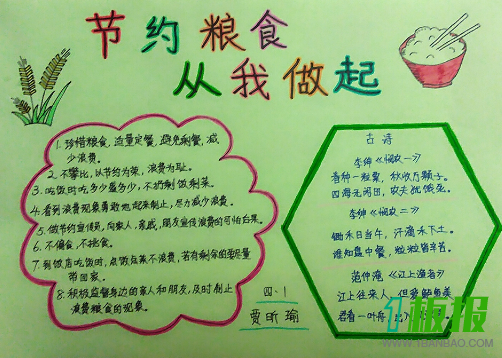 节约粮食
从我做起
1. 珍惜粮食,适量定餐,避免剩餐,减
少浪费。
2. 不攀比,以节约为荣,浪费为耻。
3. 吃饭时吃多少盛多少,不扔剩饭剩菜。
4. 看到浪费现象勇敢地起来制止,尽力减少浪费。
5. 做节约宣传员,向家人,亲戚,朋友宣传浪费的可怕后果。
6. 不偏食,不挑食。
7. 到饭店吃饭时,点饭点菜不浪费,若有剩余的要尽量
带回家。
8. 积极监督身边的家人和朋友,及时制止
浪费粮食的现象。
四·1
贾昕瑜
古诗
李绅《悯农一》
春种一粒粟,秋收万颗子。
四海无闲田,农夫犹饿死。
李绅《悯农二》
锄禾日当午,汗滴禾下土。
谁知盘中餐,粒粒皆辛苦。
范仲淹《江上渔者》
江上往来人,但爱鲈鱼美
君看一叶舟,出
1板报
WWW.1BANBAO.COM